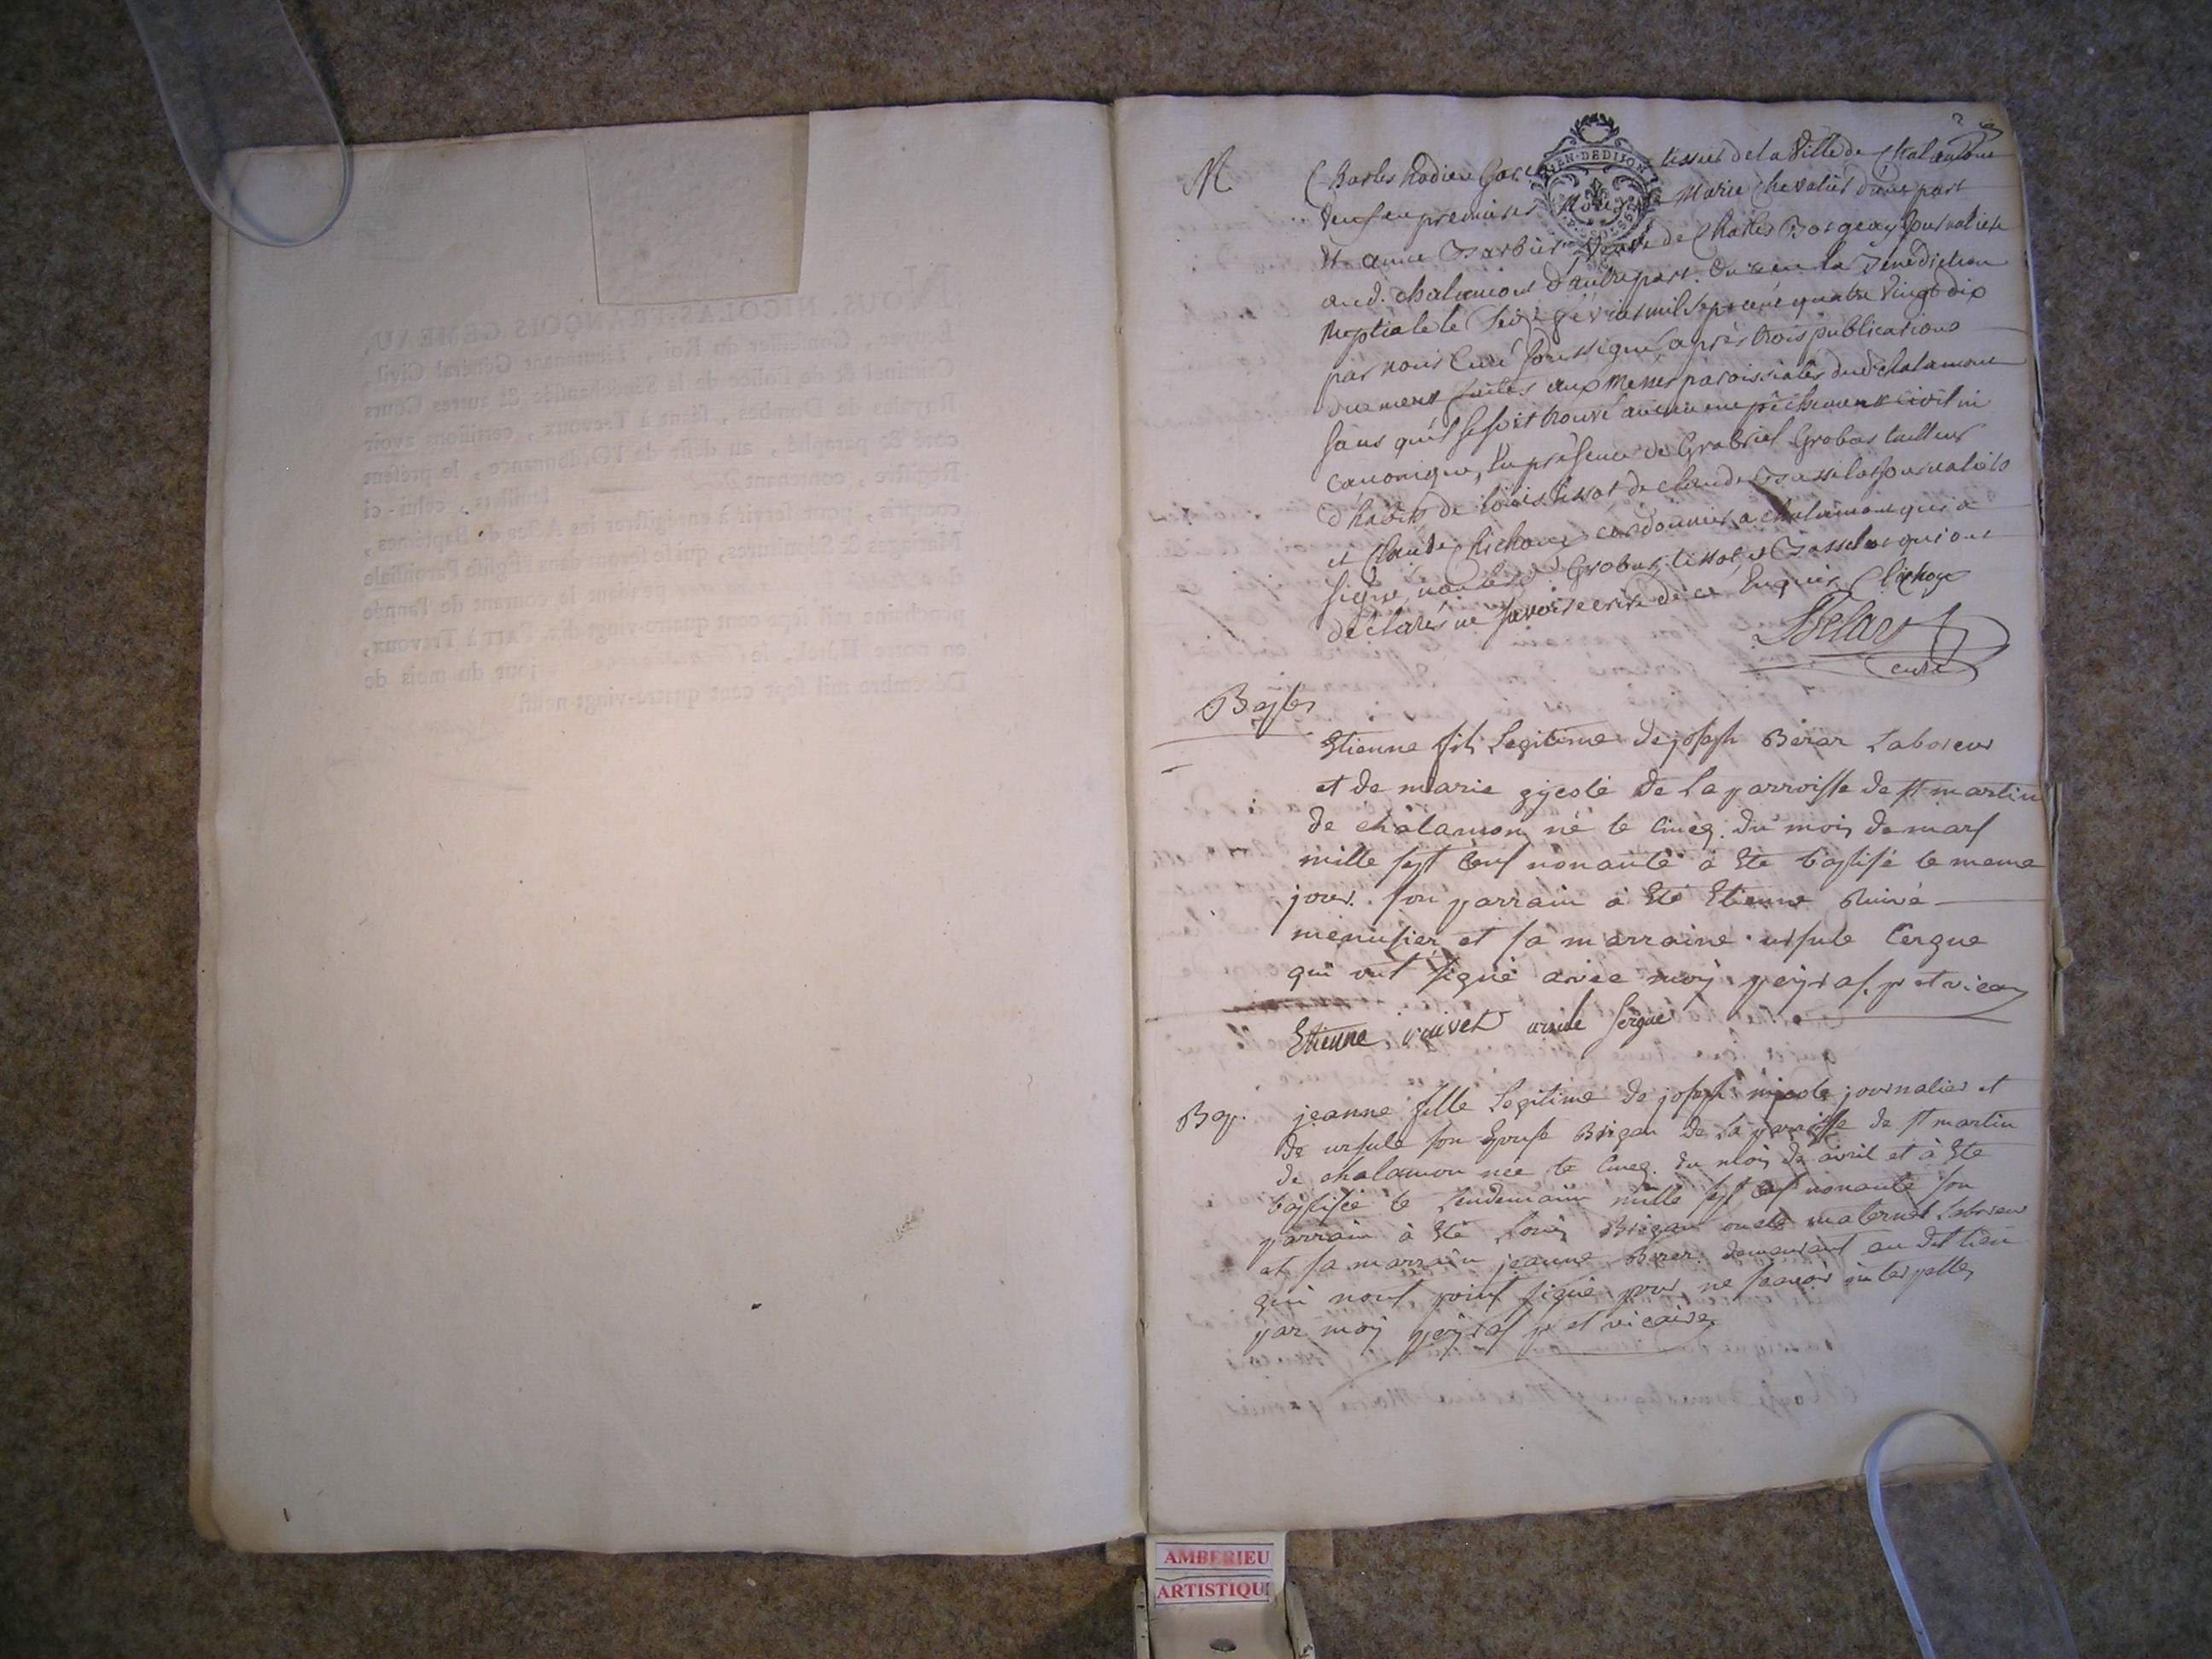 M.
Charles tissier de la Ville de Chalamont
veuf en premieres Marie Chevalier d'une part
et anne Barbier veuve de Charles journaliere
aud. chalamont d'autre part. Ont recu la Benediction
Nuptiale le Seize février mil sept cent quatre Vingt dix
par nous Curé soussigné, après trois publications
duement faites aux Messes paroissiales dud. chalamont
sans qu'il se soit trouvé aucun empêchement civil ni
canonique, En présence de Gabriel Grobas tailleur
d'habit de louis tissot de claude Basselat journaliers
et Claude Clichoux cordonnier a chalamont qui a
signé, non lesd. Grobas, tissot, et Basselat qui ont
déclarés ne savoir ecrire de ce Enquis
curé
Etienne fils Legitime de joseph Berar Laboreur
et de marie de La parroisse de st martin
de châlamon né le cincq. du mois de mars
mille sept cens nonante à Eté baptisé le meme
jour. son parrain à Eté Etienne
menusier et sa marraine ursule Cergue
qui ont signé avec moÿ peyras. ptre et vicair
Etienne ursule sergue
Bap. jeanne fille Legitime de joseph nicole journalier et
de ursule son Epouse Brigan de La parroisse de st martin
de chalamon née le cincq. du mois de avril et à Eté
baptisée le Lendemain mille sept cens nonante son
parrain à Eté Louis Brigan oncle maternel Laboreur
et sa marrain jeanne Berer demeurant au dit lieu
qui nont point signé pour ne scavoir interpellés
par moÿ peyras ptre et vicaire
NOUS, NICOLAS-FRANÇOIS GEMEAU,
Ecuyer, Conseiller du Roi, Lieutenant Général Civil,
Criminel & de Police de la Sénéchaussée & autres Cours
Royales de Dombes, séant à Trevoux, certifions avoir
coté & paraphé, au désir de l'Ordonnance, le présent
Registre, contenant feuillets, celui-ci
compris, pour servir à enregistrer les Actes de Baptêmes,
Mariages & Sépultures, qui se feront dans l'Eglise Paroissiale
d pendant le courant de l'année
prochaine mil sept cent quatre-vingt-dix. FAIT à Trevoux,
en notre Hôtel, le jour du mois de
Décembre mil sept cent quatre-vingt-neuf.
AMBERIEU
ARTISTIQU